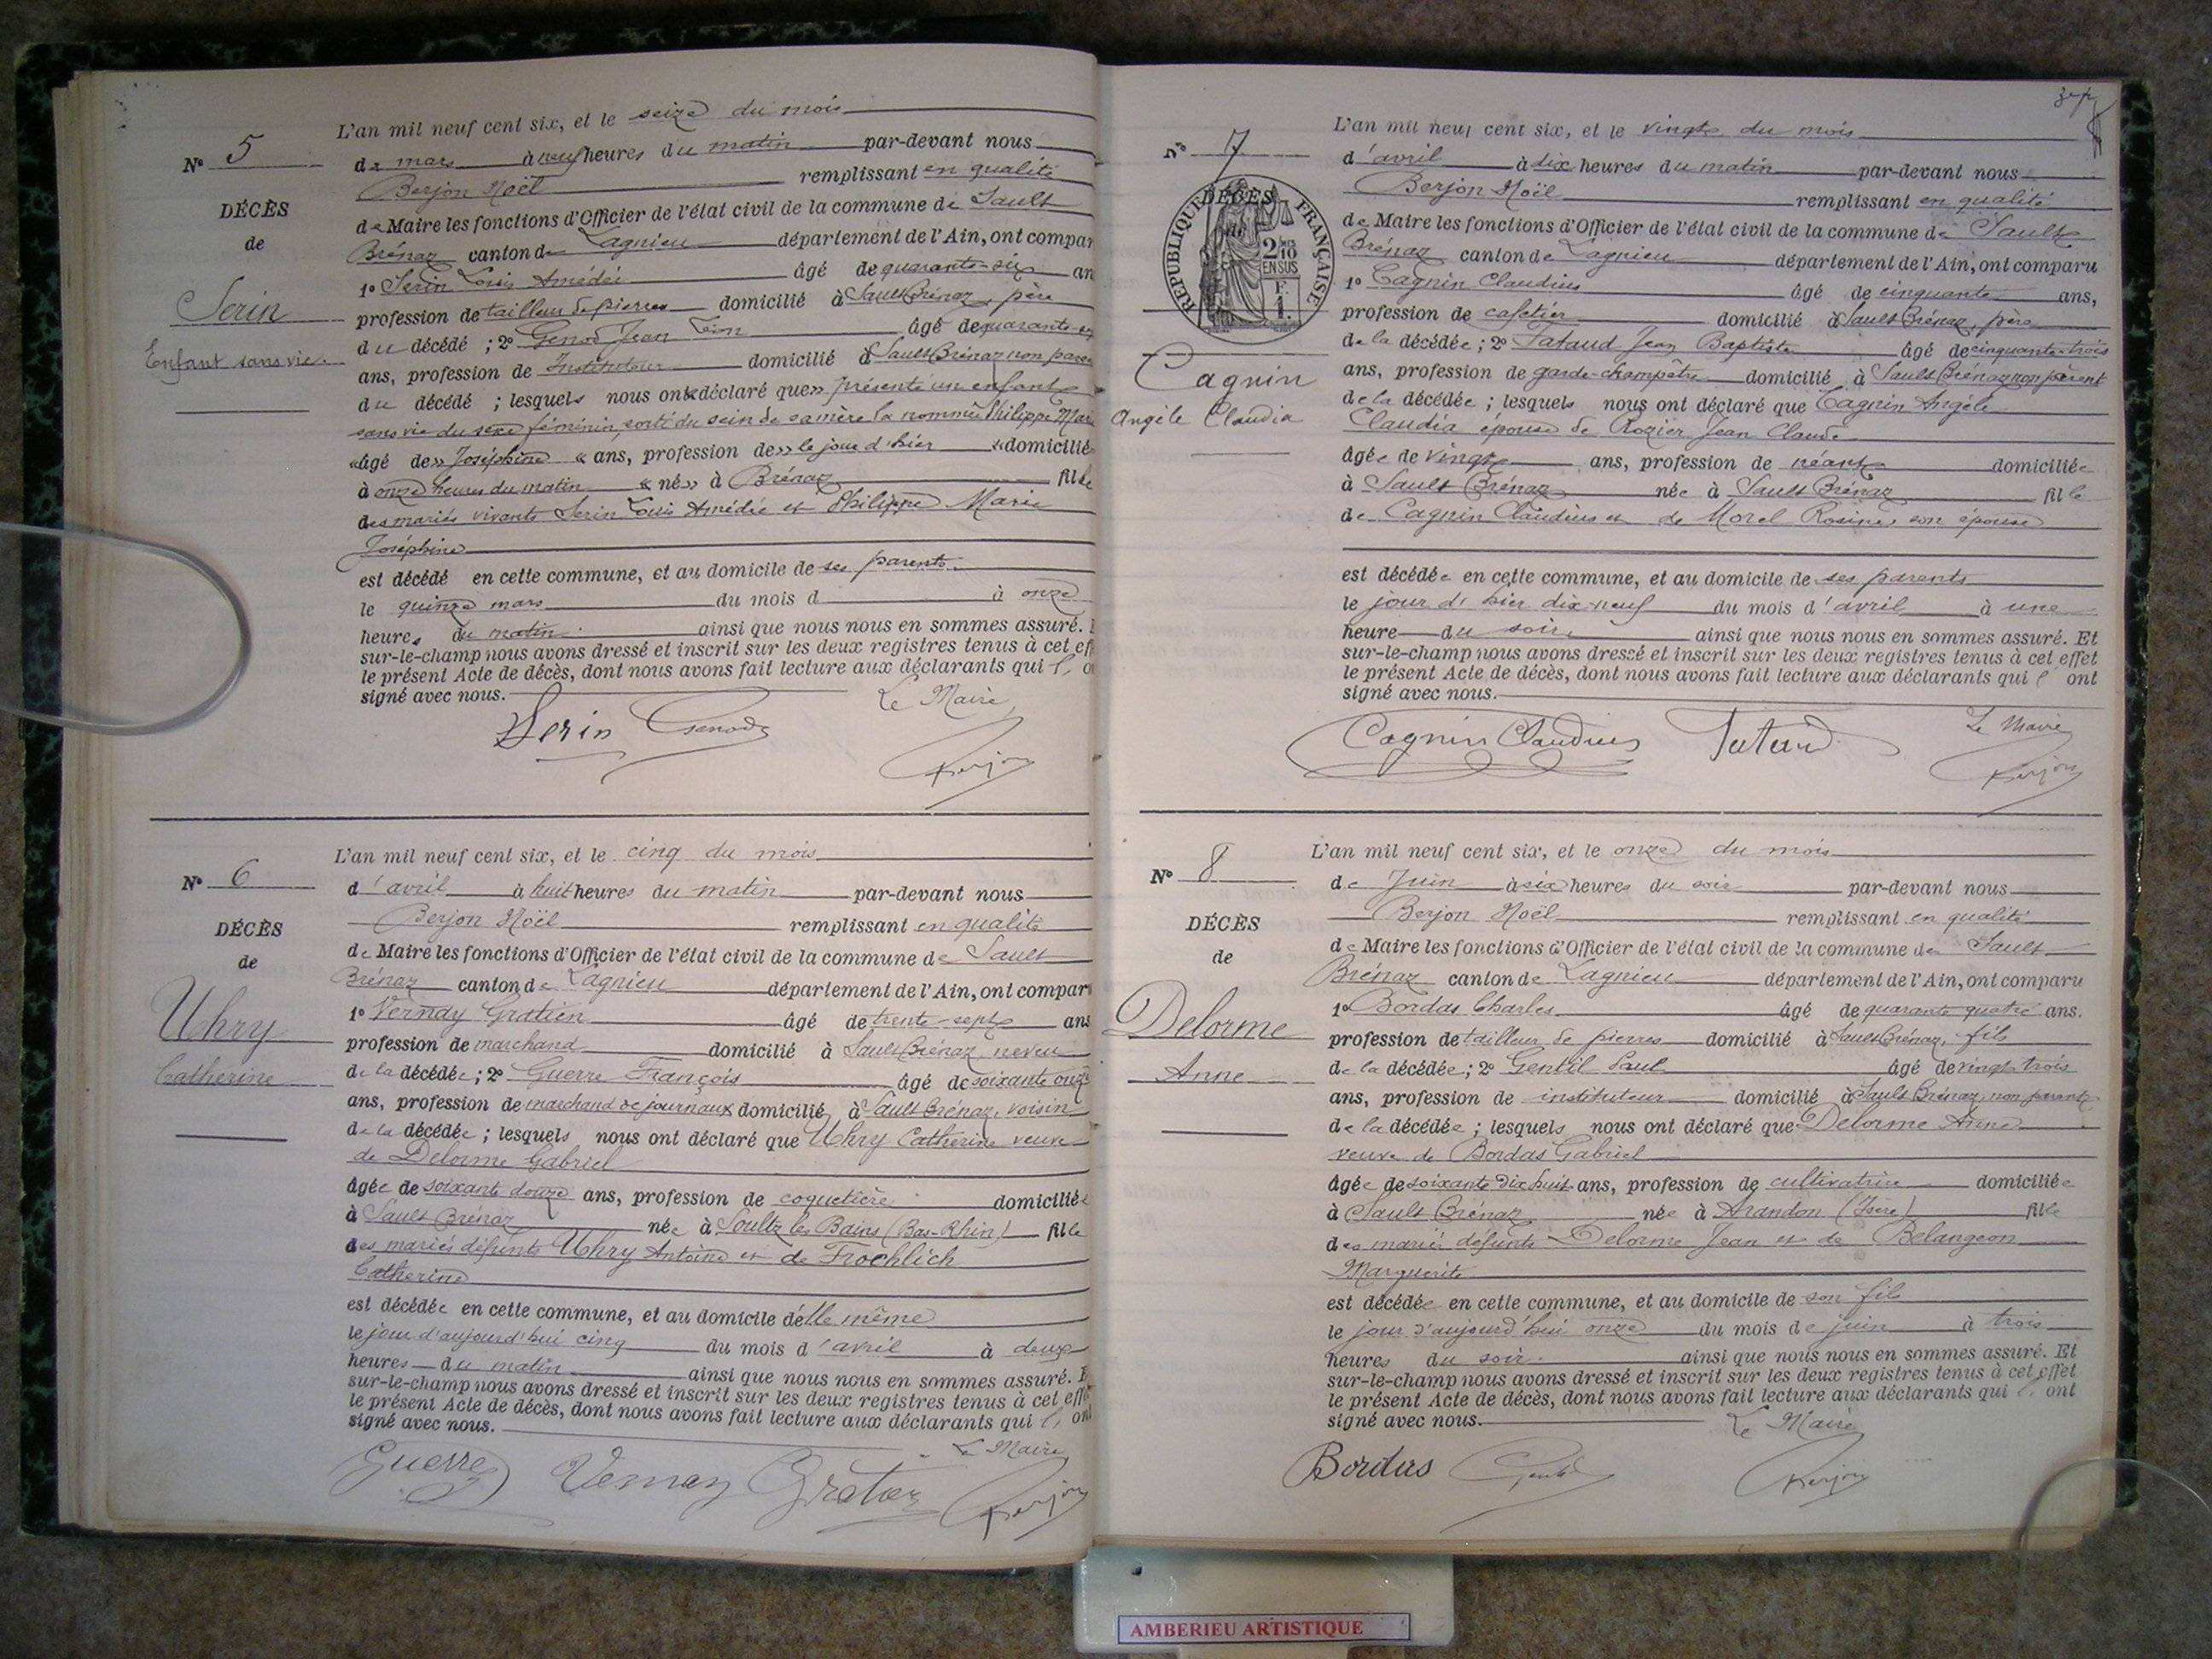 N° 5
DÉCÈS
de
Serin
Enfant sans vie
L'an mil neuf cent six, et le seize du mois
de mars à neuf heures du matin par-devant nous
Berjon Noël remplissant en qualité
de Maire les fonctions d'Officier de l'état civil de la commune de Sault
Brénaz canton de Lagnieu département de l'Ain, ont compar
1° Serin Louis Amédée âgé de quarante-six an
profession de tailleur de pierres domicilié à Sault Brénaz, père
du décédé ; 2° Genod Jean Léon âgé de quarante
ans, profession de Instituteur domicilié à Sault Brénaz non paren
du décédé ; lesquels nous ont déclaré que » présenté un enfant
sans vie du sexe féminin, sorti du sein de sa mère la nommée Philippe Marie
« âgé de » Joséphine « ans, profession de » le jour d'hier « domicilié
à onze heures du matin « né » à Brénaz fille
des mariés vivants Serin Louis Amédée et Philippe Marie
Joséphine
est décédé en cette commune, et au domicile de ses parents
le quinze mars du mois d à onze
heures du matin ainsi que nous nous en sommes assuré. E
sur-le-champ nous avons dressé et inscrit sur les deux registres tenus à cet eff
le présent Acte de décès, dont nous avons fait lecture aux déclarants qui l' o
signé avec nous. Le Maire
Serin Genod Berjon
N° 6
DÉCÈS
de
Uhry
Catherine
L'an mil neuf cent six, et le cinq du mois
d'avril à huit heures du matin par-devant nous
Berjon Noël remplissant en qualité
de Maire les fonctions d'Officier de l'état civil de la commune de Sault
Brénaz canton de Lagnieu département de l'Ain, ont compar
1° Vernay Gratien âgé de trente-sept ans
profession de marchand domicilié à Sault Brénaz, neveu
de la décédée ; 2° Guerre François âgé de soixante onze
ans, profession de marchand de journaux domicilié à Sault Brénaz, voisin
de la décédée ; lesquels nous ont déclaré que Uhry Catherine veuve
de Delorme Gabriel
âgée de soixante douze ans, profession de coquetière domiciliée
à Sault Brénaz née à Soultz les Bains (Bas-Rhin) fille
des mariés défunts Uhry Antoine et de Froehlich
Catherine
est décédée en cette commune, et au domicile d'elle même
le jour d'aujourd'hui cinq du mois d'avril à deux
heures du matin ainsi que nous nous en sommes assuré. E
sur-le-champ nous avons dressé et inscrit sur les deux registres tenus à cet effe
le présent Acte de décès, dont nous avons fait lecture aux déclarants qui l' ont
signé avec nous.
Le Maire
Guerre Vernay Gratien Berjon
N° 7
DÉCÈS
RÉPUBLIQUE FRANÇAISE
2/10
EN SUS
F.
1.
Cagnin
Angèle Claudia
L'an mil neuf cent six, et le vingt du mois
d'avril à dix heures du matin par-devant nous
Berjon Noël remplissant en qualité
de Maire les fonctions d'Officier de l'état civil de la commune de Sault
Brénaz canton de Lagnieu département de l'Ain, ont comparu
1° Cagnin Claudius âgé de cinquante ans,
profession de cafetier domicilié à Sault Brénaz, père
de la décédée ; 2° Tataud Jean Baptiste âgé de cinquante-trois
ans, profession de garde-champêtre domicilié à Sault Brénaz non parent
de la décédée ; lesquels nous ont déclaré que Cagnin Angèle
Claudia épouse de Rozier Jean Claude
âgée de vingt ans, profession de néant domiciliée
à Sault Brénaz née à Sault Brénaz fille
de Cagnin Claudius et de Morel Rosine, son épouse
est décédée en cette commune, et au domicile de ses parents
le jour d'hier dix-neuf du mois d'avril à une
heure du soir ainsi que nous nous en sommes assuré. Et
sur-le-champ nous avons dressé et inscrit sur les deux registres tenus à cet effet
le présent Acte de décès, dont nous avons fait lecture aux déclarants qui l' ont
signé avec nous.
Le Maire
Cagnin Claudius Tataud Berjon
N° 8
DÉCÈS
de
Delorme
Anne
L'an mil neuf cent six, et le onze du mois
de Juin à six heures du soir par-devant nous
Berjon Noël remplissant en qualité
de Maire les fonctions d'Officier de l'état civil de la commune de Sault
Brénaz canton de Lagnieu département de l'Ain, ont comparu
1° Bordas Charles âgé de quarante quatre ans.
profession de tailleur de pierres domicilié à Sault Brénaz, fils
de la décédée ; 2° Gentil Paul âgé de vingt trois
ans, profession de instituteur domicilié à Sault Brénaz, non parent
de la décédée ; lesquels nous ont déclaré que Delorme Anne
veuve de Bordas Gabriel
âgée de soixante dix huit ans, profession de cultivatrice domiciliée
à Sault Brénaz née à Arandon (Isère) fille
des mariés défunts Delorme Jean et de Belangeon
Marguerite
est décédée en cette commune, et au domicile de son fils
le jour d'aujourd'hui onze du mois de juin à trois
heures du soir ainsi que nous nous en sommes assuré. Et
sur-le-champ nous avons dressé et inscrit sur les deux registres tenus à cet effet
le présent Acte de décès, dont nous avons fait lecture aux déclarants qui l' ont
signé avec nous. Le Maire
Bordas Gentil Berjon
AMBERIEU ARTISTIQUE